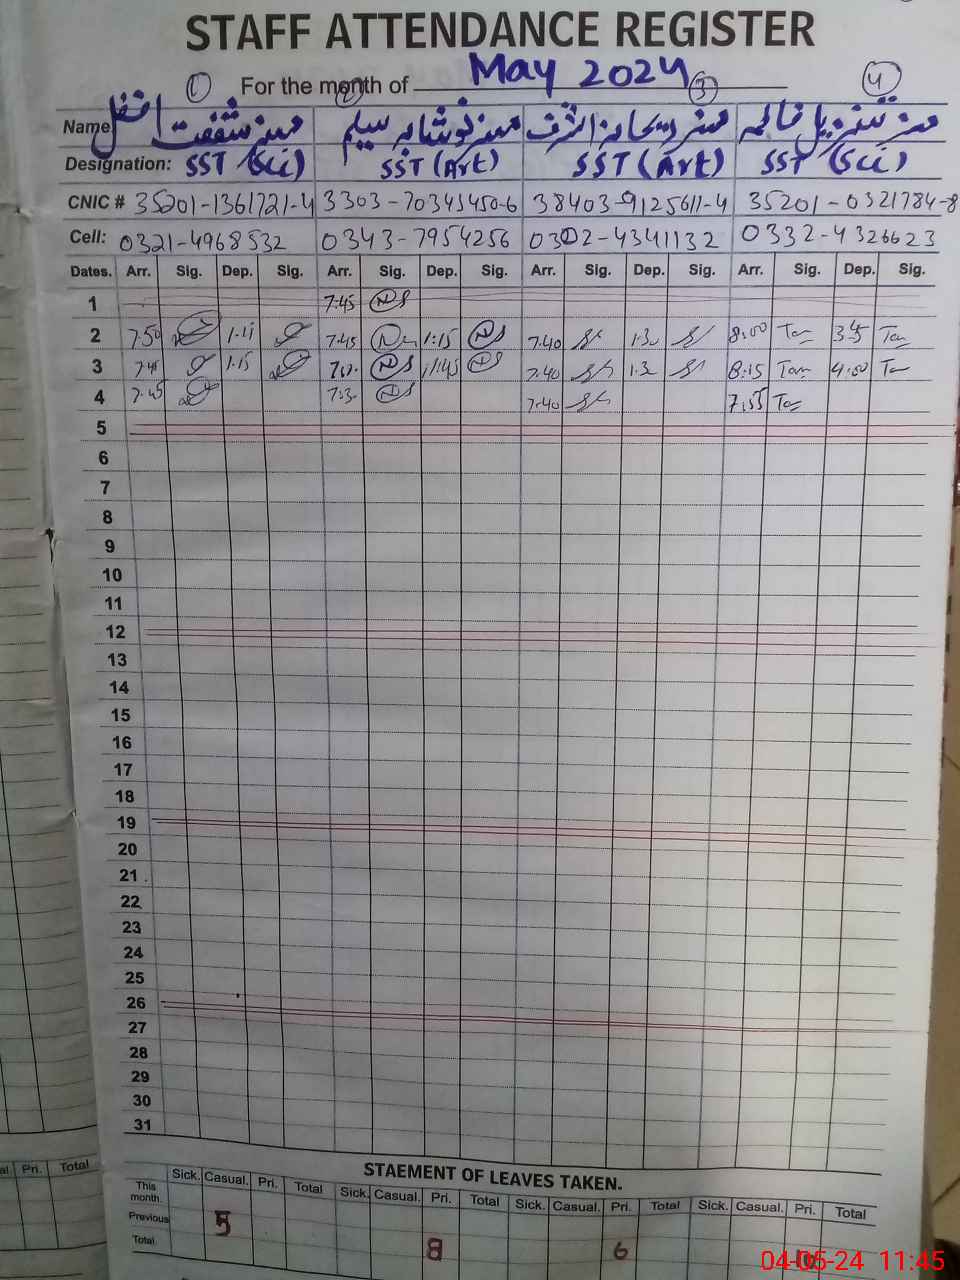 STAFF ATTENDANCE REGISTER
For the month of May 2024
1 2 3 4
Name مسز شفقت افضل مسز نوشابہ سلیم مسز ریحانہ اشرف مسز
Designation: SST (Sci) SST (Art) SST (Art) SST (Sci)
CNIC # 35201-1361721-4 3303-70345450-6 38403-9125611-4 35201-0321784-8
Cell: 0321-4968532 0343-7954256 0302-4341132 0332-4326623
Dates. Arr. Sig. Dep. Sig. Arr. Sig. Dep. Sig. Arr. Sig. Dep. Sig. Arr. Sig. Dep. Sig.
1 7.45
2 7.50 1.15 7.45 1:15 7.40 1.30 8:00 3.45
3 7.45 1.15 1:45 7.40 1.3 8:15 4.00
4 7.45 7.3 7.40 7.55
5
6
7
8
9
10
11
12
13
14
15
16
17
18
19
20
21
22
23
24
25
26
27
28
29
30
31
STAEMENT OF LEAVES TAKEN.
al Pri. Total
Sick. Casual. Pri. Total Sick. Casual. Pri. Total Sick. Casual. Pri. Total Sick. Casual. Pri. Total
This month.
Previous 5
Total 8 6
04-05-24 11:45